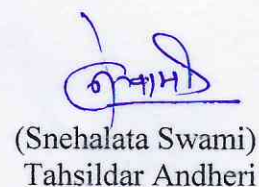 (Snehalata Swami)
Tahsildar Andheri